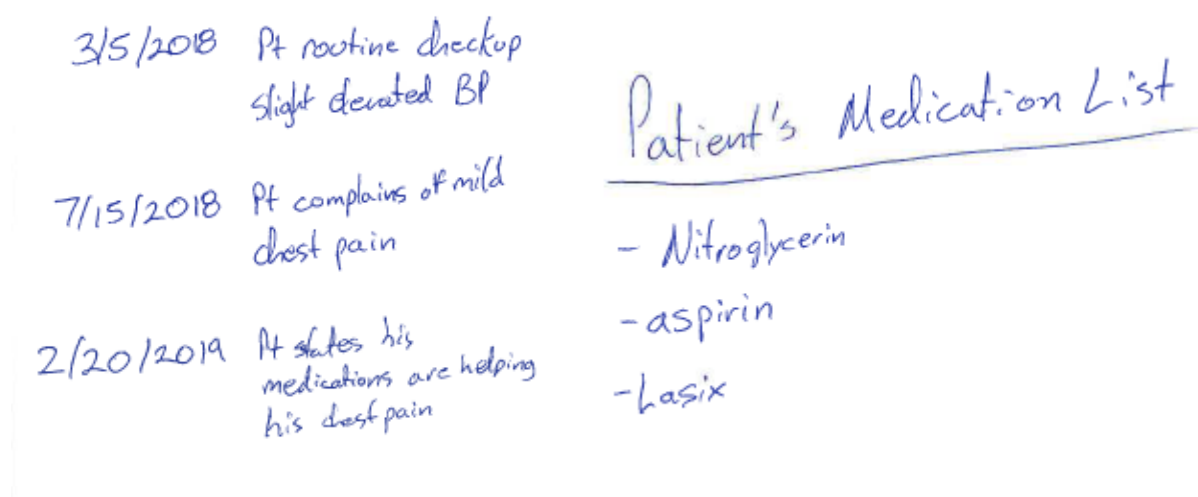 3/5/2018 Pt routine checkup
slight elevated BP
7/15/2018 Pt complains of mild
chest pain
2/20/2019 Pt states his
medications are helping
his chest pain
Patient's Medication List
- Nitroglycerin
- aspirin
- Lasix